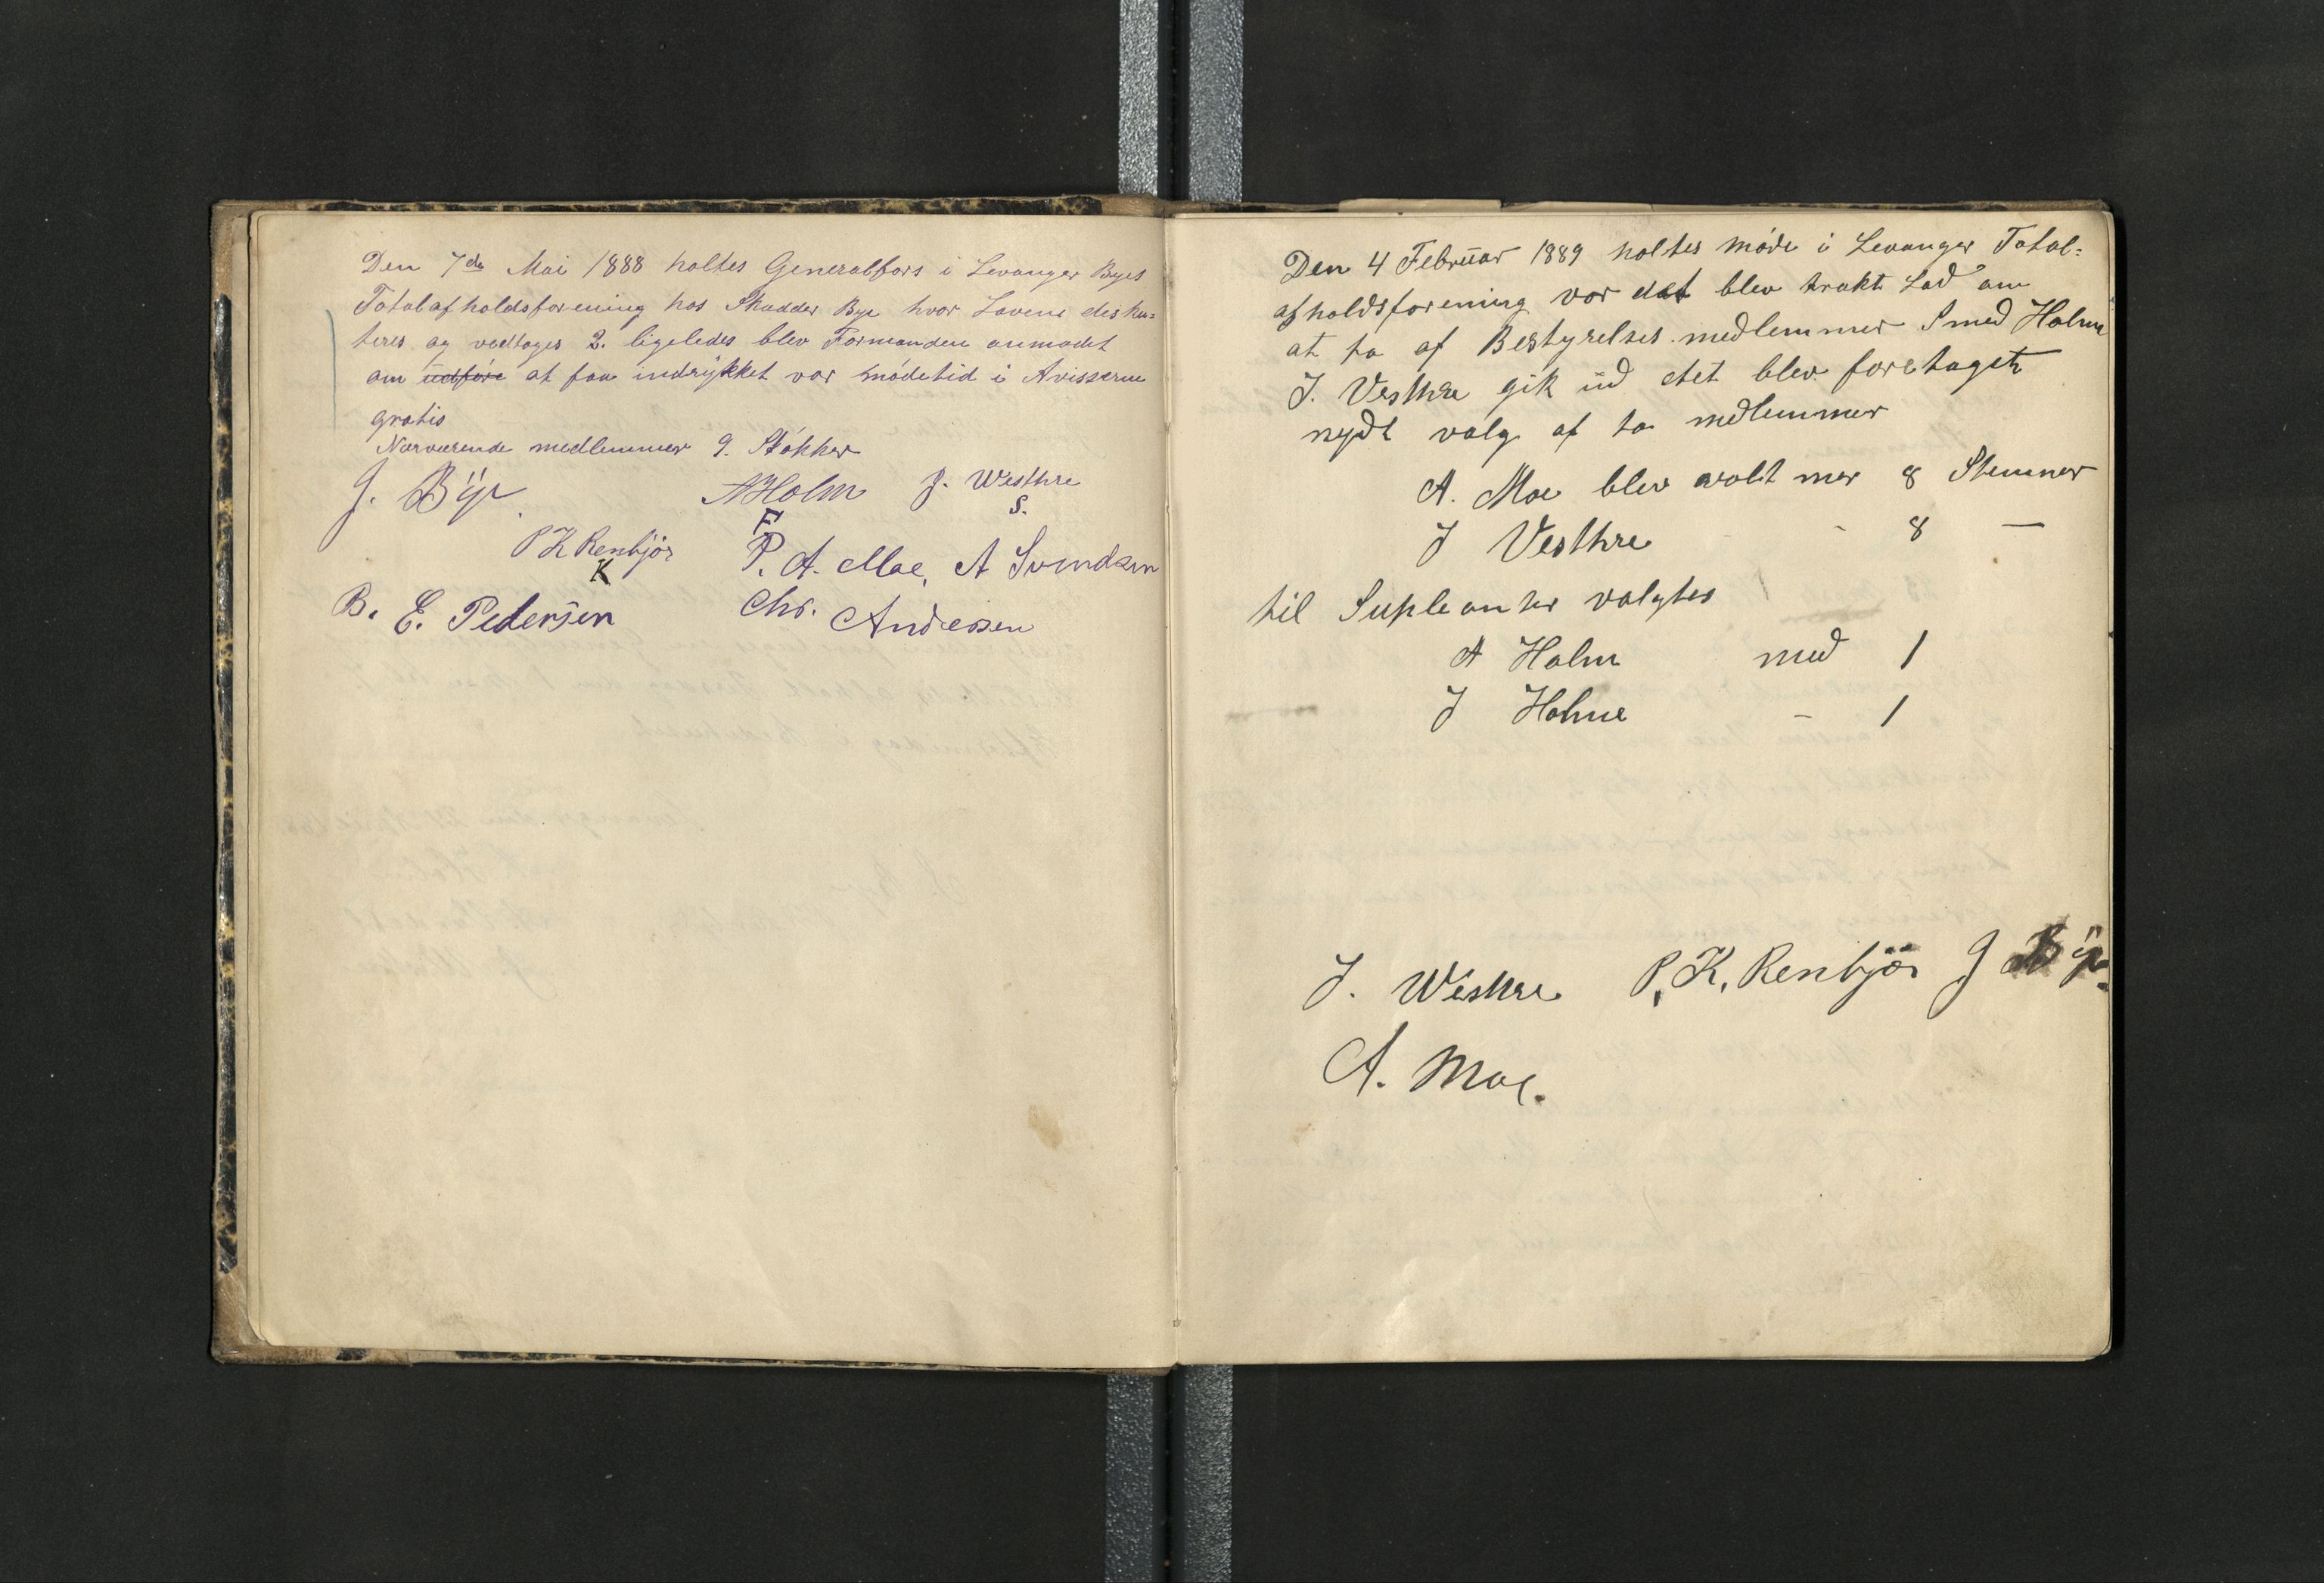 Den 7de Mai 1888 holtes Generalfors i Levanger Byes
Totalafholdsforening hos Skadder Bye hvor Lovene disku=
teres og vedtoges 2. ligeledes blev Formanden anmodet
om udføre at faa indrykket vor mødetid i Avisserne
gratis
Nærværende medlemmer 9. Støkker
J. Bye. AHolm J. Westhre
F S.
P K Renbjør P. A. Moe, A Svendsen
K
B. E. Pedersen Chr. Andersen
Den 4 Februar 1889 holtes møde i Levanger Total=
afholdsforening vor det blev trakt Lod om
at to af Bestyrelses medlemmer Smed Holm
J. Vesthre gik ud det blev foretaget
nydt valg af to medlemmer
A. Moe blev valt mer 8 Stemmer
J Vesthre - 8 —
til Supleanter valgtes
A Holm med 1
J Holme - 1
J. Westhre P. K. Renbjør J Bye.
A. Moe.